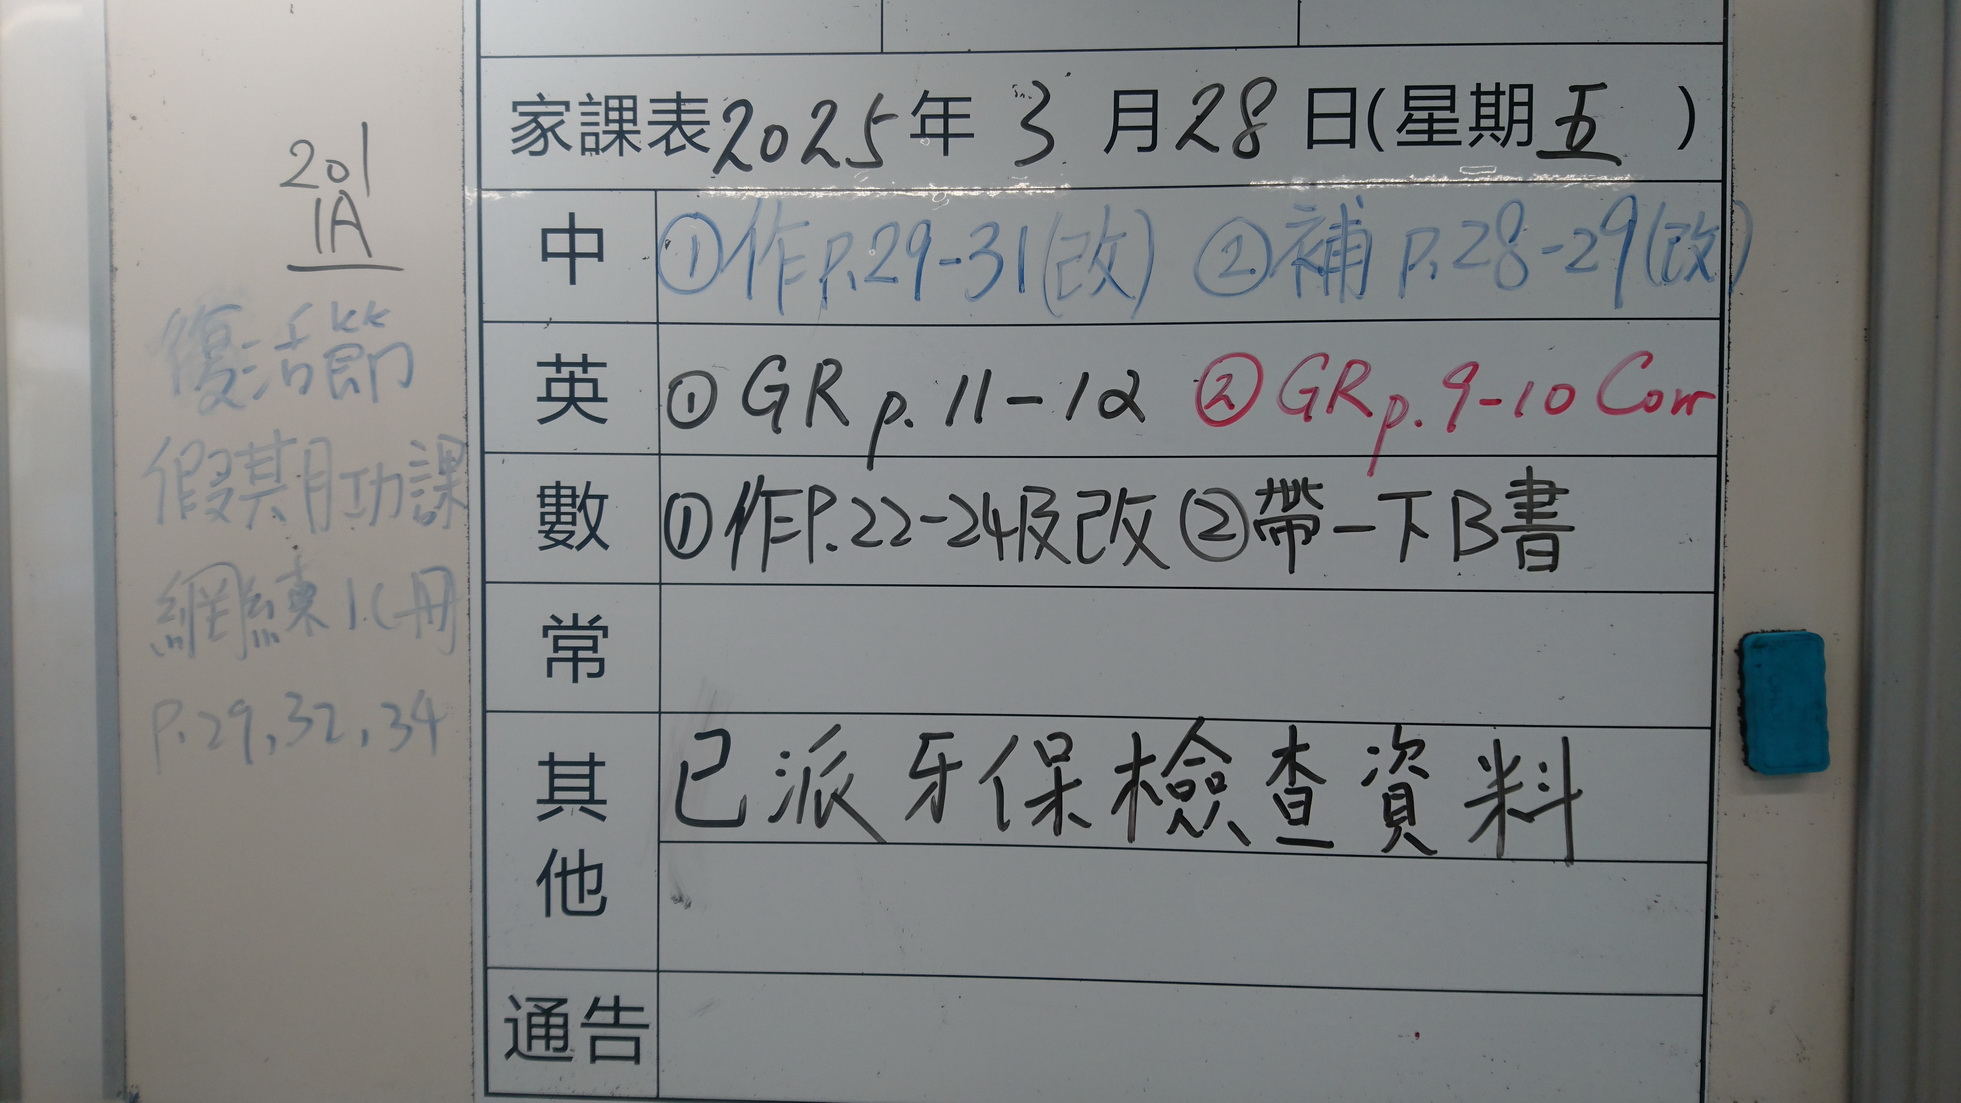 201
1A
復活節
假期功課
網練1C冊
P.29,32,34
家課表2025年3月28日(星期五)
中 ①作P.29-31(改) ②補P.28-29(改)
英 ①GR p.11-12 ②GR p.9-10 Corr
數 ①作P.22-24及改②帶一下B書
常
其他 已派牙保檢查資料
通告